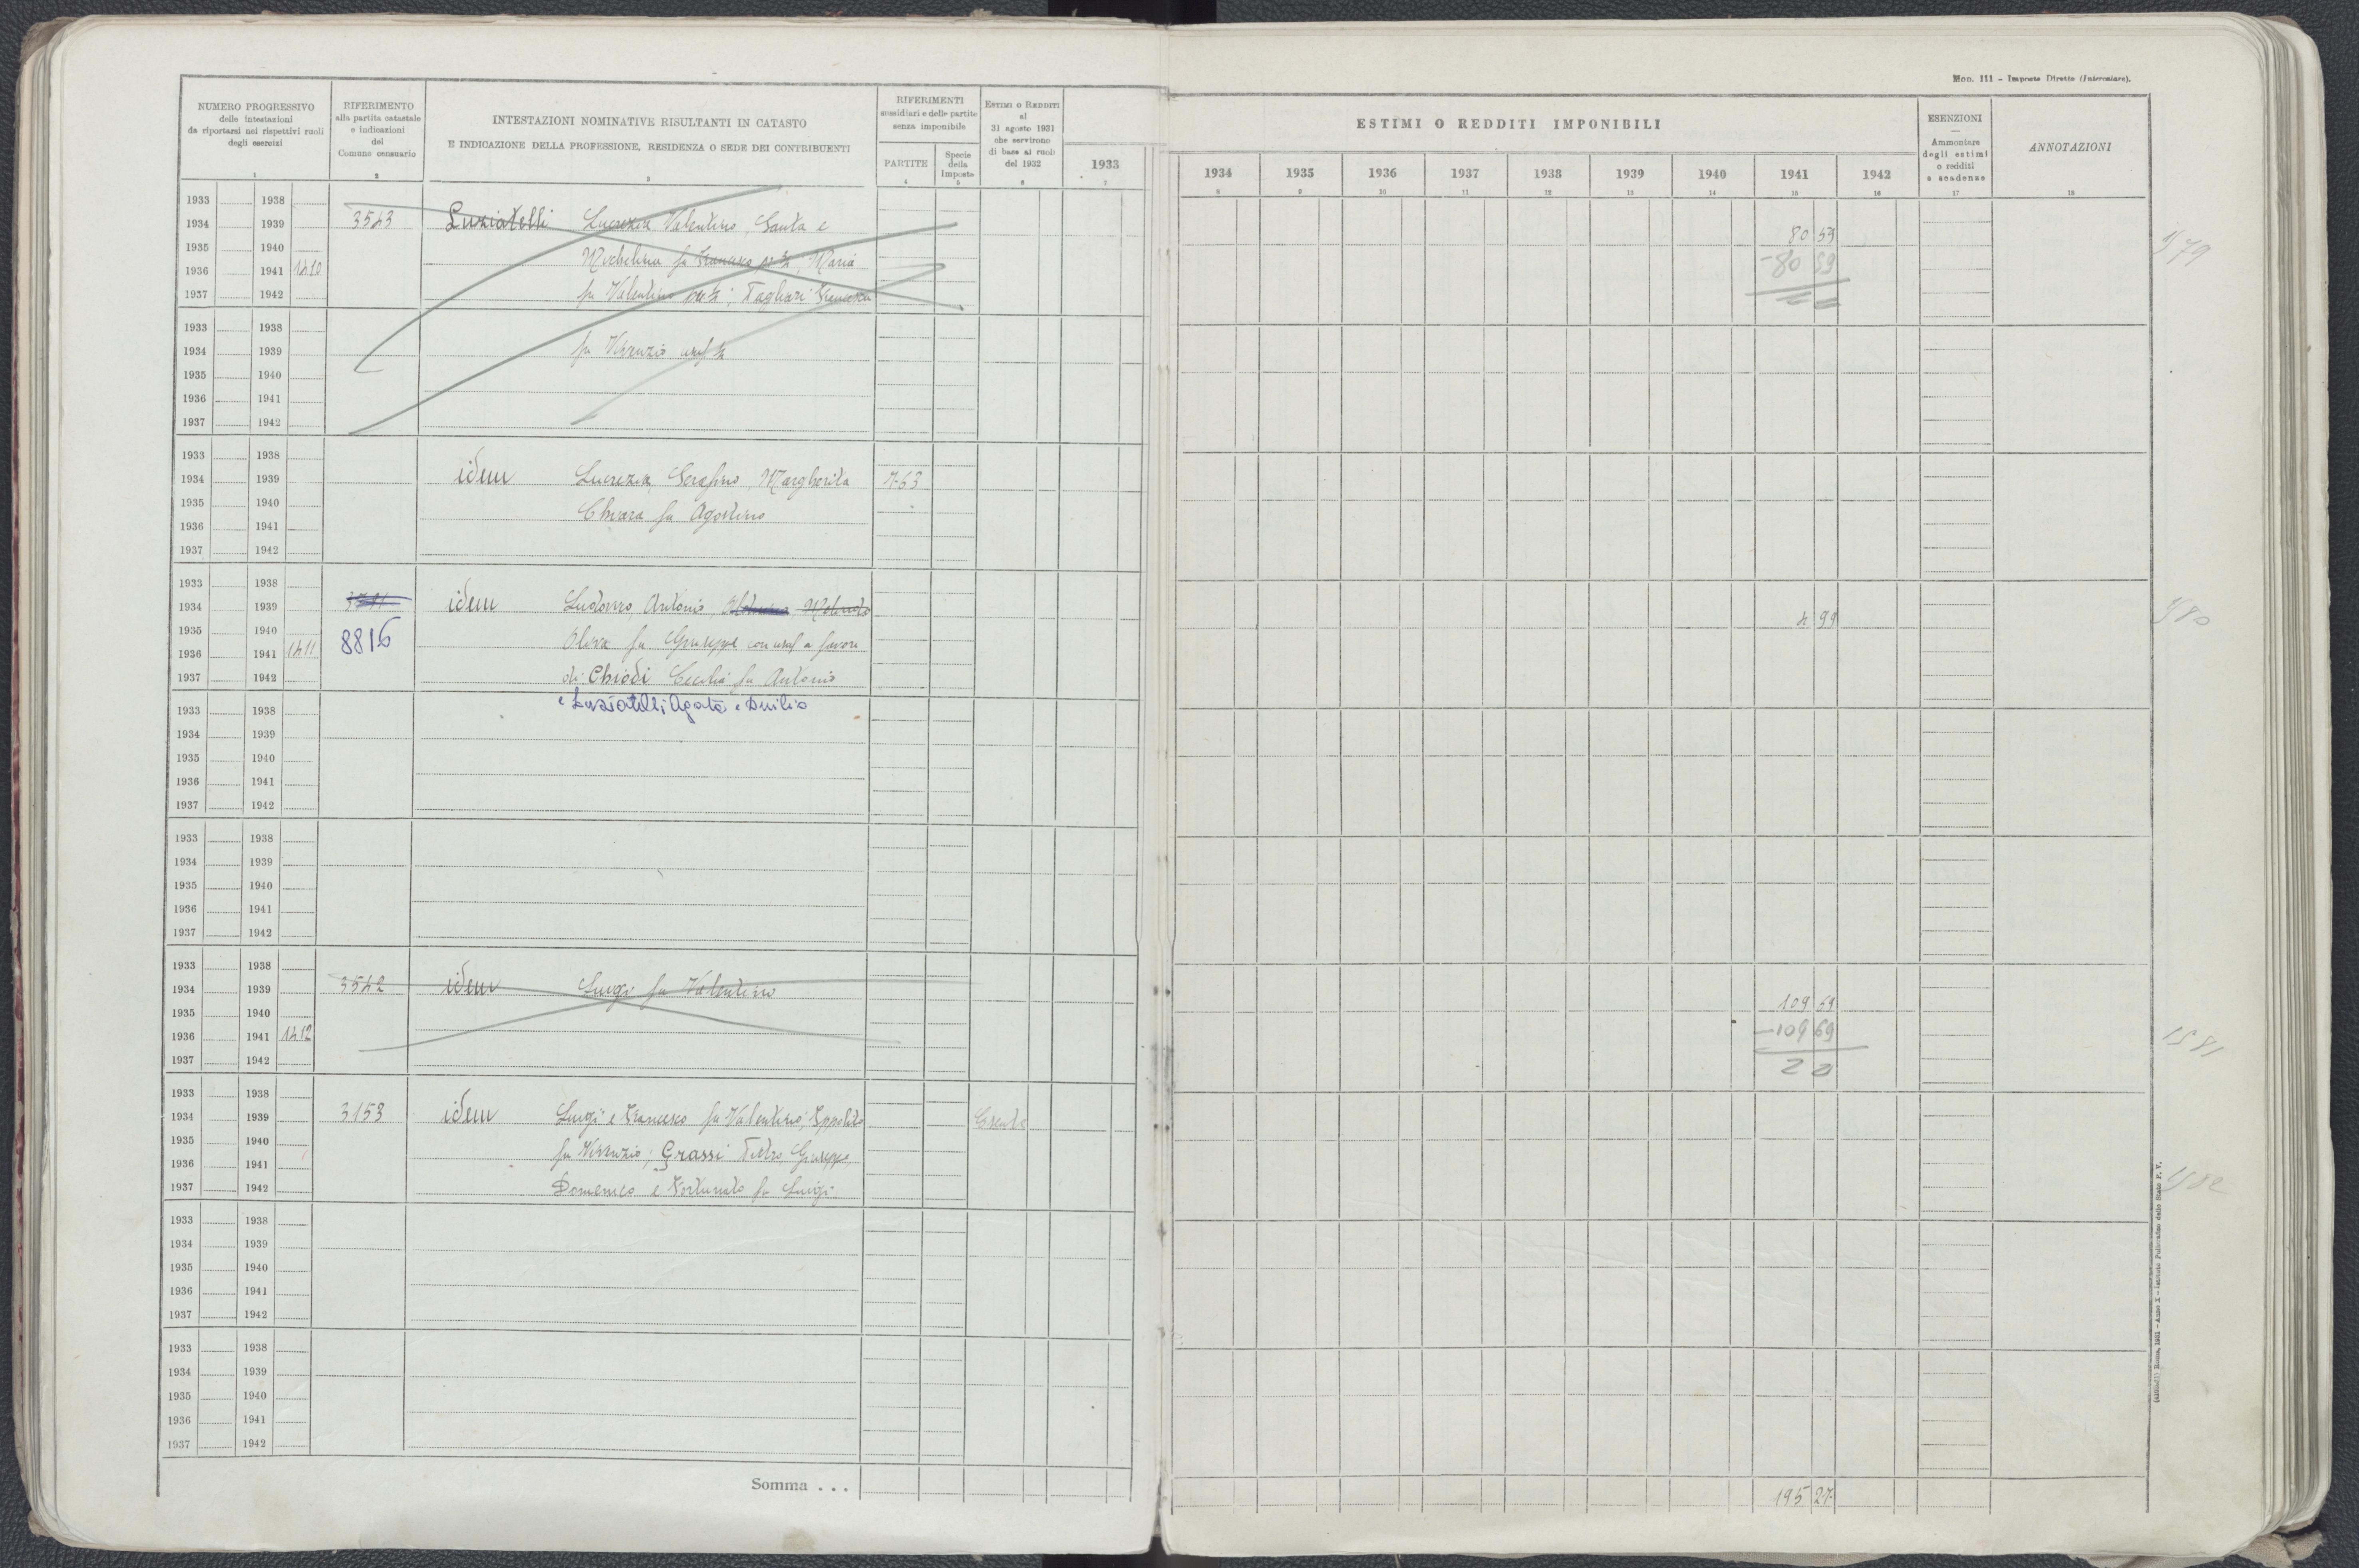 Mod. 111 - Imposte Dirette (Intercalare).
NUMERO PROGRESSIVO
delle intestazioni
da riportarsi nei rispettivi ruoli
degli esercizi
1
RIFERIMENTO
alla partita catastale
e indicazioni
del
Comune censuario
2
INTESTAZIONI NOMINATIVE RISULTANTI IN CATASTO
E INDICAZIONE DELLA PROFESSIONE, RESIDENZA O SEDE DEI CONTRIBUENTI
3
RIFERIMENTI
sussidiari e delle partite
senza imponibile
PARTITE
4
Specie
della
Imposta
5
ESTIMI O REDDITI
al
31 agosto 1931
che servirono
di base ai ruoli
del 1932
6
1933
7
ESTIMI O REDDITI IMPONIBILI
1934 1935 1936 1937 1938 1939 1940 1941 1942
8 9 10 11 12 13 14 15 16
ESENZIONI
Ammontare
degli estimi
o redditi
e scadenze
17
ANNOTAZIONI
18
1933 1938
1934 1939 3543 Luziatelli Lucrezia Valentino, Santa e 80 59
1935 1940 Michelina fu Francesco, Maria -80 59
1936 1941 1410
1937 1942 fu Valentino; Tagliari Francesca
1933 1938
1934 1939 fu Nunzio usuf
1935 1940
1936 1941
1937 1942
1933 1938
1934 1939 idem Lucrezia, Serafino, Margherita 763
1935 1940 Chiara fu Agostino
1936 1941
1937 1942
1933 1938
1934 1939 idem Ludovico, Antonio, 4 99
1935 1940 8816 fu Giuseppe con usuf a favore
1936 1941 1411
1937 1942 di Chiodi Cecilia fu Antonio
e Luziatelli Agata e Duilio
1933 1938
1934 1939
1935 1940
1936 1941
1937 1942
1933 1938
1934 1939
1935 1940
1936 1941
1937 1942
1933 1938
1934 1939 3542 idem Luigi fu Valentino
1935 1940 109 69
1936 1941 1412 -109 69
1937 1942
1933 1938
1934 1939 3153 idem Luigi e Francesco fu Valentino, Ippolito Esente
1935 1940 fu Nunzio; Grassi Pietro, Giuseppe,
1936 1941
1937 1942 Domenico e Fortunato fu Luigi
1933 1938
1934 1939
1935 1940
1936 1941
1937 1942
1933 1938
1934 1939
1935 1940
1936 1941
1937 1942
Somma . . . 195 27